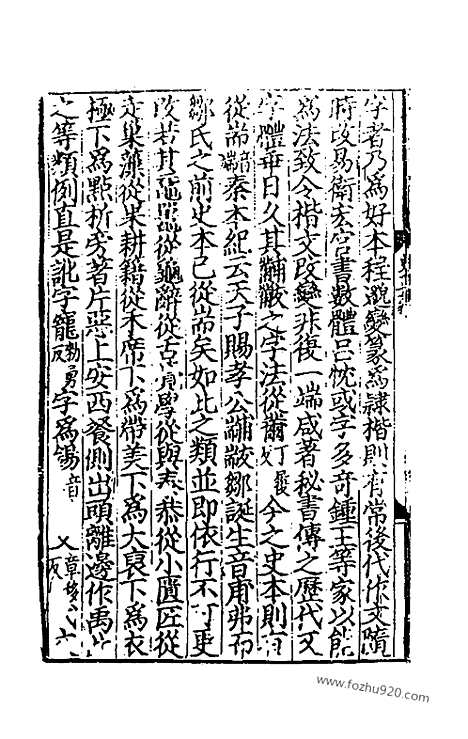 字者乃爲好本程邈變篆爲隸楷則有常後代作文隨
時改易衛宏官書數體呂忱或字多奇鍾王等家以能
爲法致令楷文改變非復一端咸著秘書傳之歷代又
字體乖日久其黼黻之字法從黹丁履反今之史本則有
從耑音端秦本紀云天子賜孝公黼黻鄒誕生音甫弗而
鄒氏之前史本已從耑矣如此之類並即依行不可更
改若其黿鼉從龜辭從舌覺學從與泰恭從小匱匠從
走巢藻從果耕籍從禾席下爲帶美下爲大裒下爲衣
極下爲點析旁著片惡上安西餐側出頭離邊作禹
之等類例直是訛字寵勅勇反字爲錫音
www.fozhu920.com